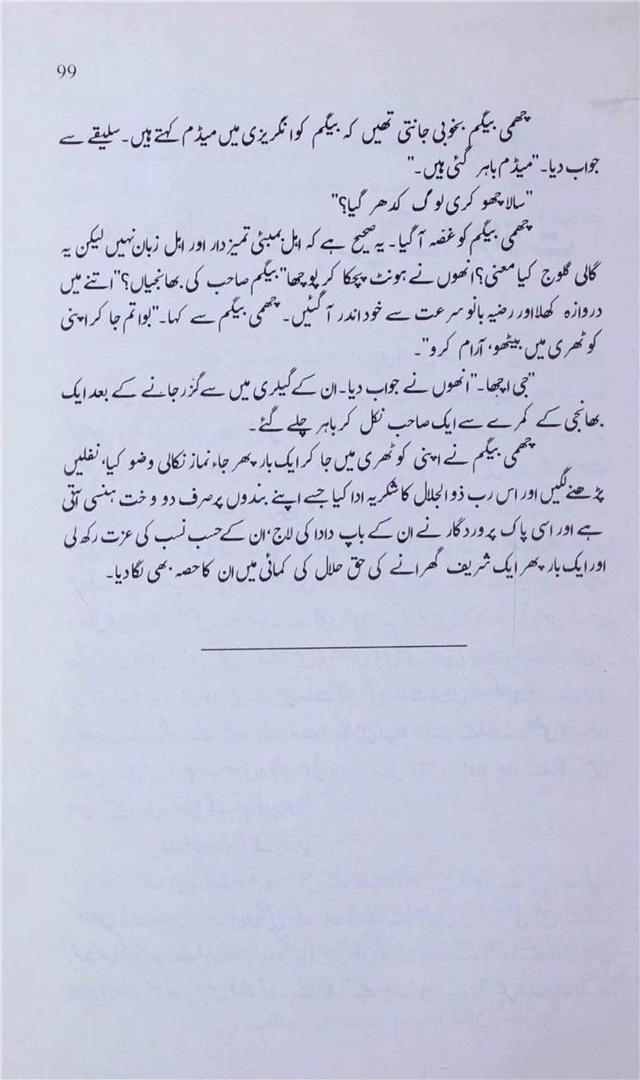 99
چھمی بیگم بخوبی جانتی تھیں کہ بیگم کو انگریزی میں میڈم کہتے ہیں۔ سلیقے سے
جواب دیا۔ "میڈم باہر گئی ہیں۔"
"سالا چھو کری لوگ کدھر گیا؟"
چھمی بیگم کو غصہ آ گیا۔ یہ صحیح ہے کہ اہل بمبئی تمیز دار اور اہل زبان نہیں لیکن یہ
گالی گلوچ کیا معنی؟ انھوں نے ہونٹ پچکا کر پوچھا "بیگم صاحب کی بھانجیاں؟" اتنے میں
دروازہ کھلا اور رضیہ بانو سرعت سے خود اندر آ گئیں۔ چھمی بیگم سے کہا۔ "بوا تم جا کر اپنی
کوٹھری میں بیٹھو، آرام کرو"۔
"جی اچھا۔" انھوں نے جواب دیا۔ ان کے گیلری میں سے گزر جانے کے بعد ایک
بھانجی کے کمرے سے ایک صاحب نکل کر باہر چلے گئے۔
چھمی بیگم نے اپنی کوٹھری میں جا کر ایک بار پھر جاء نماز نکالی وضو کیا، نفلیں
پڑھنے لگیں اور اس رب ذوالجلال کا شکریہ ادا کیا جسے اپنے بندوں پر صرف دو وخت ہنسی آتی
ہے اور اسی پاک پروردگار نے ان کے باپ دادا کی لاج، ان کے حسب نسب کی عزت رکھ لی
اور ایک بار پھر ایک شریف گھرانے کی حق حلال کی کمائی میں ان کا حصہ بھی لگا دیا۔